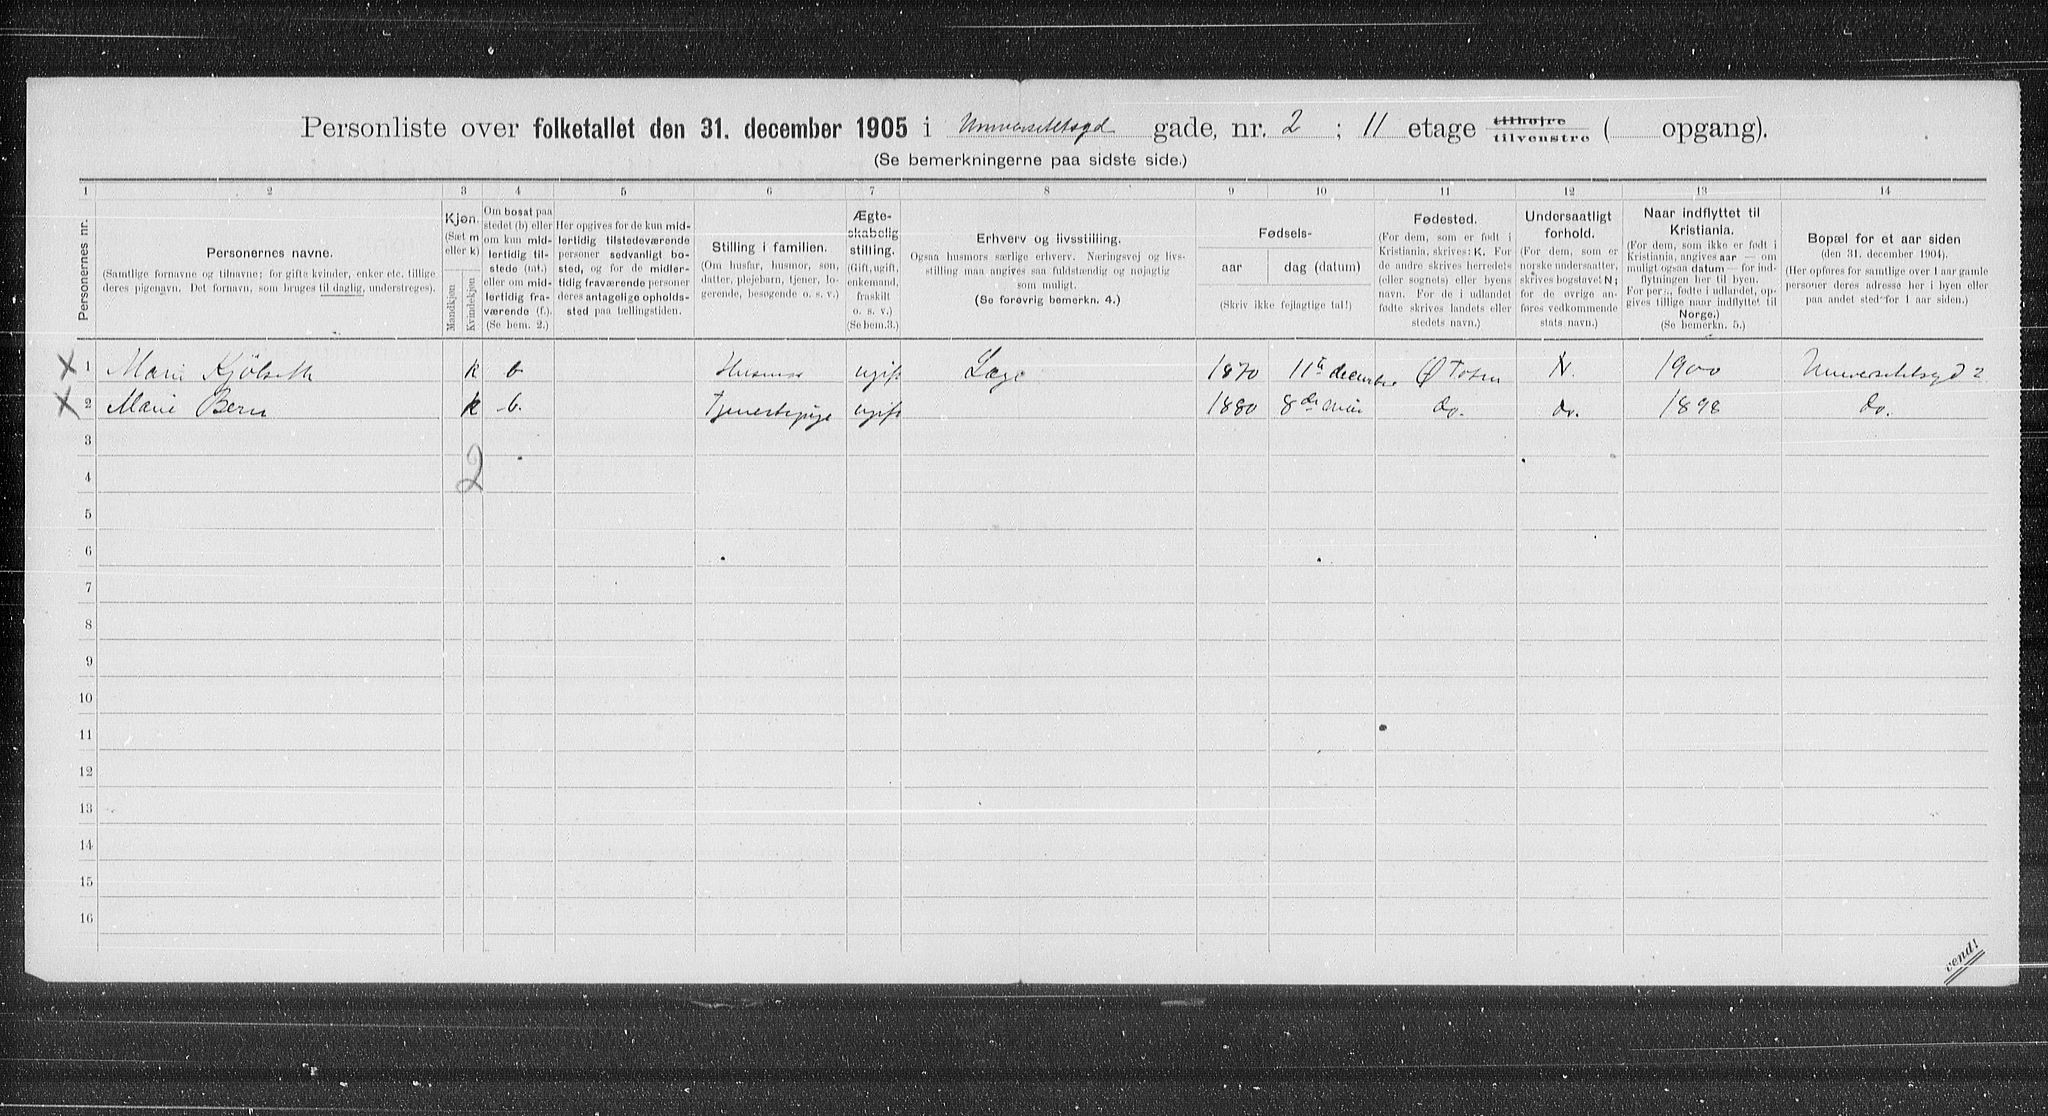 Personliste over folketallet den 31. december 1905 i Universitetsgd gade, nr. 2 ; 11 etage tilhøjre tilvenstre ( opgang).
(Se bemerkningerne paa sidste side.)
1 2 3 4 5 6 7 8 9 10 11 12 13 14
Personernes nr.
Personernes navne.
(Samtlige fornavne og tilnavne; for gifte kvinder, enker etc. tillige
deres pigenavn. Det fornavn, som bruges til daglig, understreges).
Kjøn.
(Sæt m
eller k)
Mandkjøn
Kvindekjøn
Om bosat paa
stedet (b) eller
om kun mid-
lertidig til-
stede (mt.)
eller om mid-
lertidig fra-
værende (f.).
(Se bem. 2.)
Her opgives for de kun mid-
lertidig tilstedeværende
personer sedvanligt bo-
sted, og for de midler-
tidig fraværende personer
deres antagelige opholds-
sted paa tællingstiden.
Stilling i familien.
(Om husfar, husmor, søn,
datter, plejebarn, tjener, lo-
gerende, besøgende o. s. v.)
Ægte-
skabelig
stilling.
(Gift, ugift,
enkemand,
fraskilt
o. s. v.)
(Se bem.3.)
Erhverv og livsstilling.
Ogsaa husmors særlige erhverv. Næringsvej og livs-
stilling maa angives saa fuldstændig og nøjagtig
som muligt.
(Se forøvrig bemerkn. 4.)
Fødsels-
aar dag (datum)
(Skriv ikke fejlagtige tal!)
Fødested.
(For dem, som er født i
Kristiania, skrives: K. For
de andre skrives herredets
(eller sognets) eller byens
navn. For de i udlandet
fødte skrives landets eller
stedets navn.)
Undersaatligt
forhold.
(For dem, som er
norske undersaatter,
skrives bogstavet N;
for de øvrige an-
føres vedkommende
stats navn.)
Naar indflyttet til
Kristiania.
(For dem, som ikke er født i
Kristiania, angives aar — om
muligt ogsaa datum — for ind-
flytningen her til byen.
For per:., fødte i udlandet, op-
gives tillige naar indflyttet til
Norge.)
(Se bemerkn. 5.)
Bopæl for et aar siden
(den 31. december 1904).
(Her opføres for samtlige over 1 aar gamle
personer deres adresse her i byen eller
paa andet sted for 1 aar siden.)
X 1 Marie Kjölseth k b Husmor ugift Læge 1870 11te december Ø Toten N. 1900 Universitetsgd 2
X 2 Marie Bern k b. Tjenestepige ugift 1880 8de mai do. do. 1898 do.
3
2
4
5
6
7
8
9
10
11
12
13
14
15
16
vend!